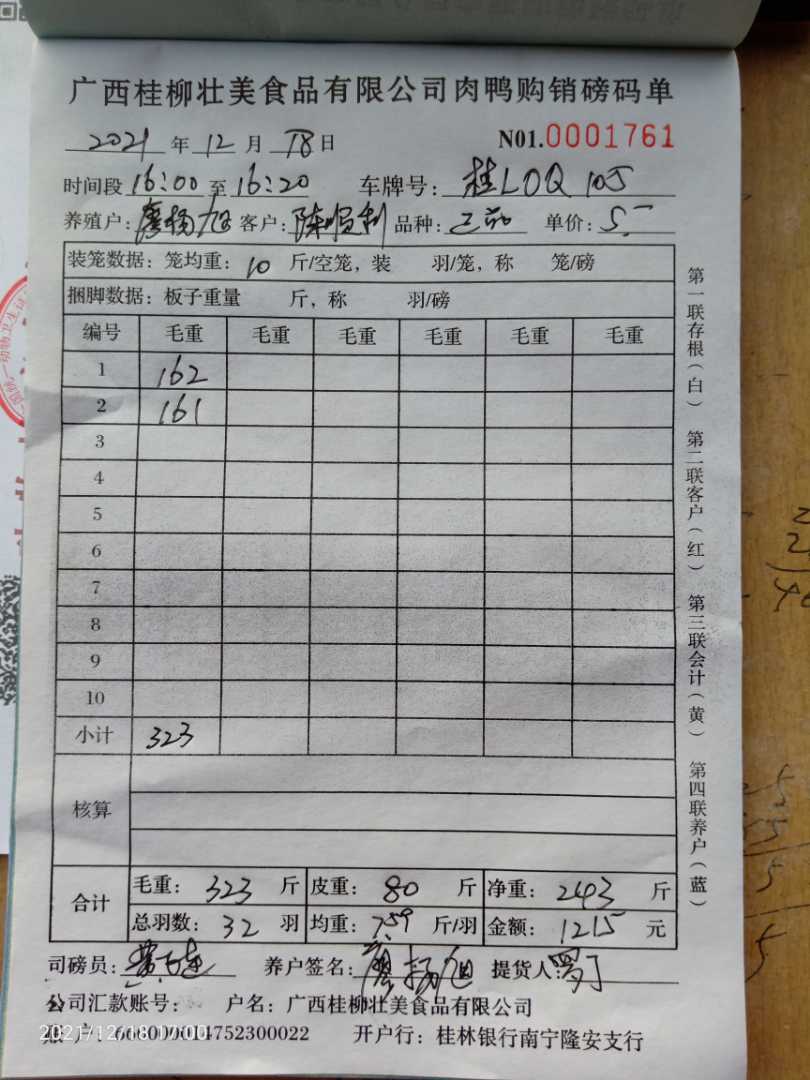 广西桂柳壮美食品有限公司肉鸭购销磅码单
2021 年 12 月 18 日 N01.0001761
时间段 16:00 至 16:20 车牌号: 桂L0Q105
养殖户: 廖杨旭 客户: 陈顺利 品种: 三品 单价: 5.
装笼数据: 笼均重: 10 斤/空笼, 装 羽/笼, 称 笼/磅
捆脚数据: 板子重量 斤, 称 羽/磅
编号 毛重 毛重 毛重 毛重 毛重 毛重
1 162
2 161
3
4
5
6
7
8
9
10
小计 323
核算
合计 毛重: 323 斤 皮重: 80 斤 净重: 243 斤
总羽数: 32 羽 均重: 7.59 斤/羽 金额: 1215 元
司磅员: 养户签名: 廖杨旭 提货人:
公司汇款账号: 户名: 广西桂柳壮美食品有限公司
账 户: 660000014752300022 开户行: 桂林银行南宁隆安支行
第一联存根(白) 第二联客户(红) 第三联会计(黄) 第四联养户(蓝)